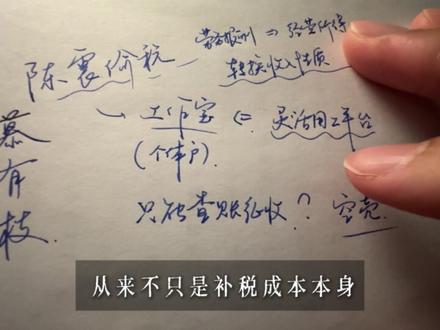 陈震偷税 — 劳务报酬 ⇒ 经营所得
转换收入性质
工作室 ⇐ 灵活用工平台
(个体户)
只能查账征收？ 空壳
慕有枝
从来不只是补税成本本身